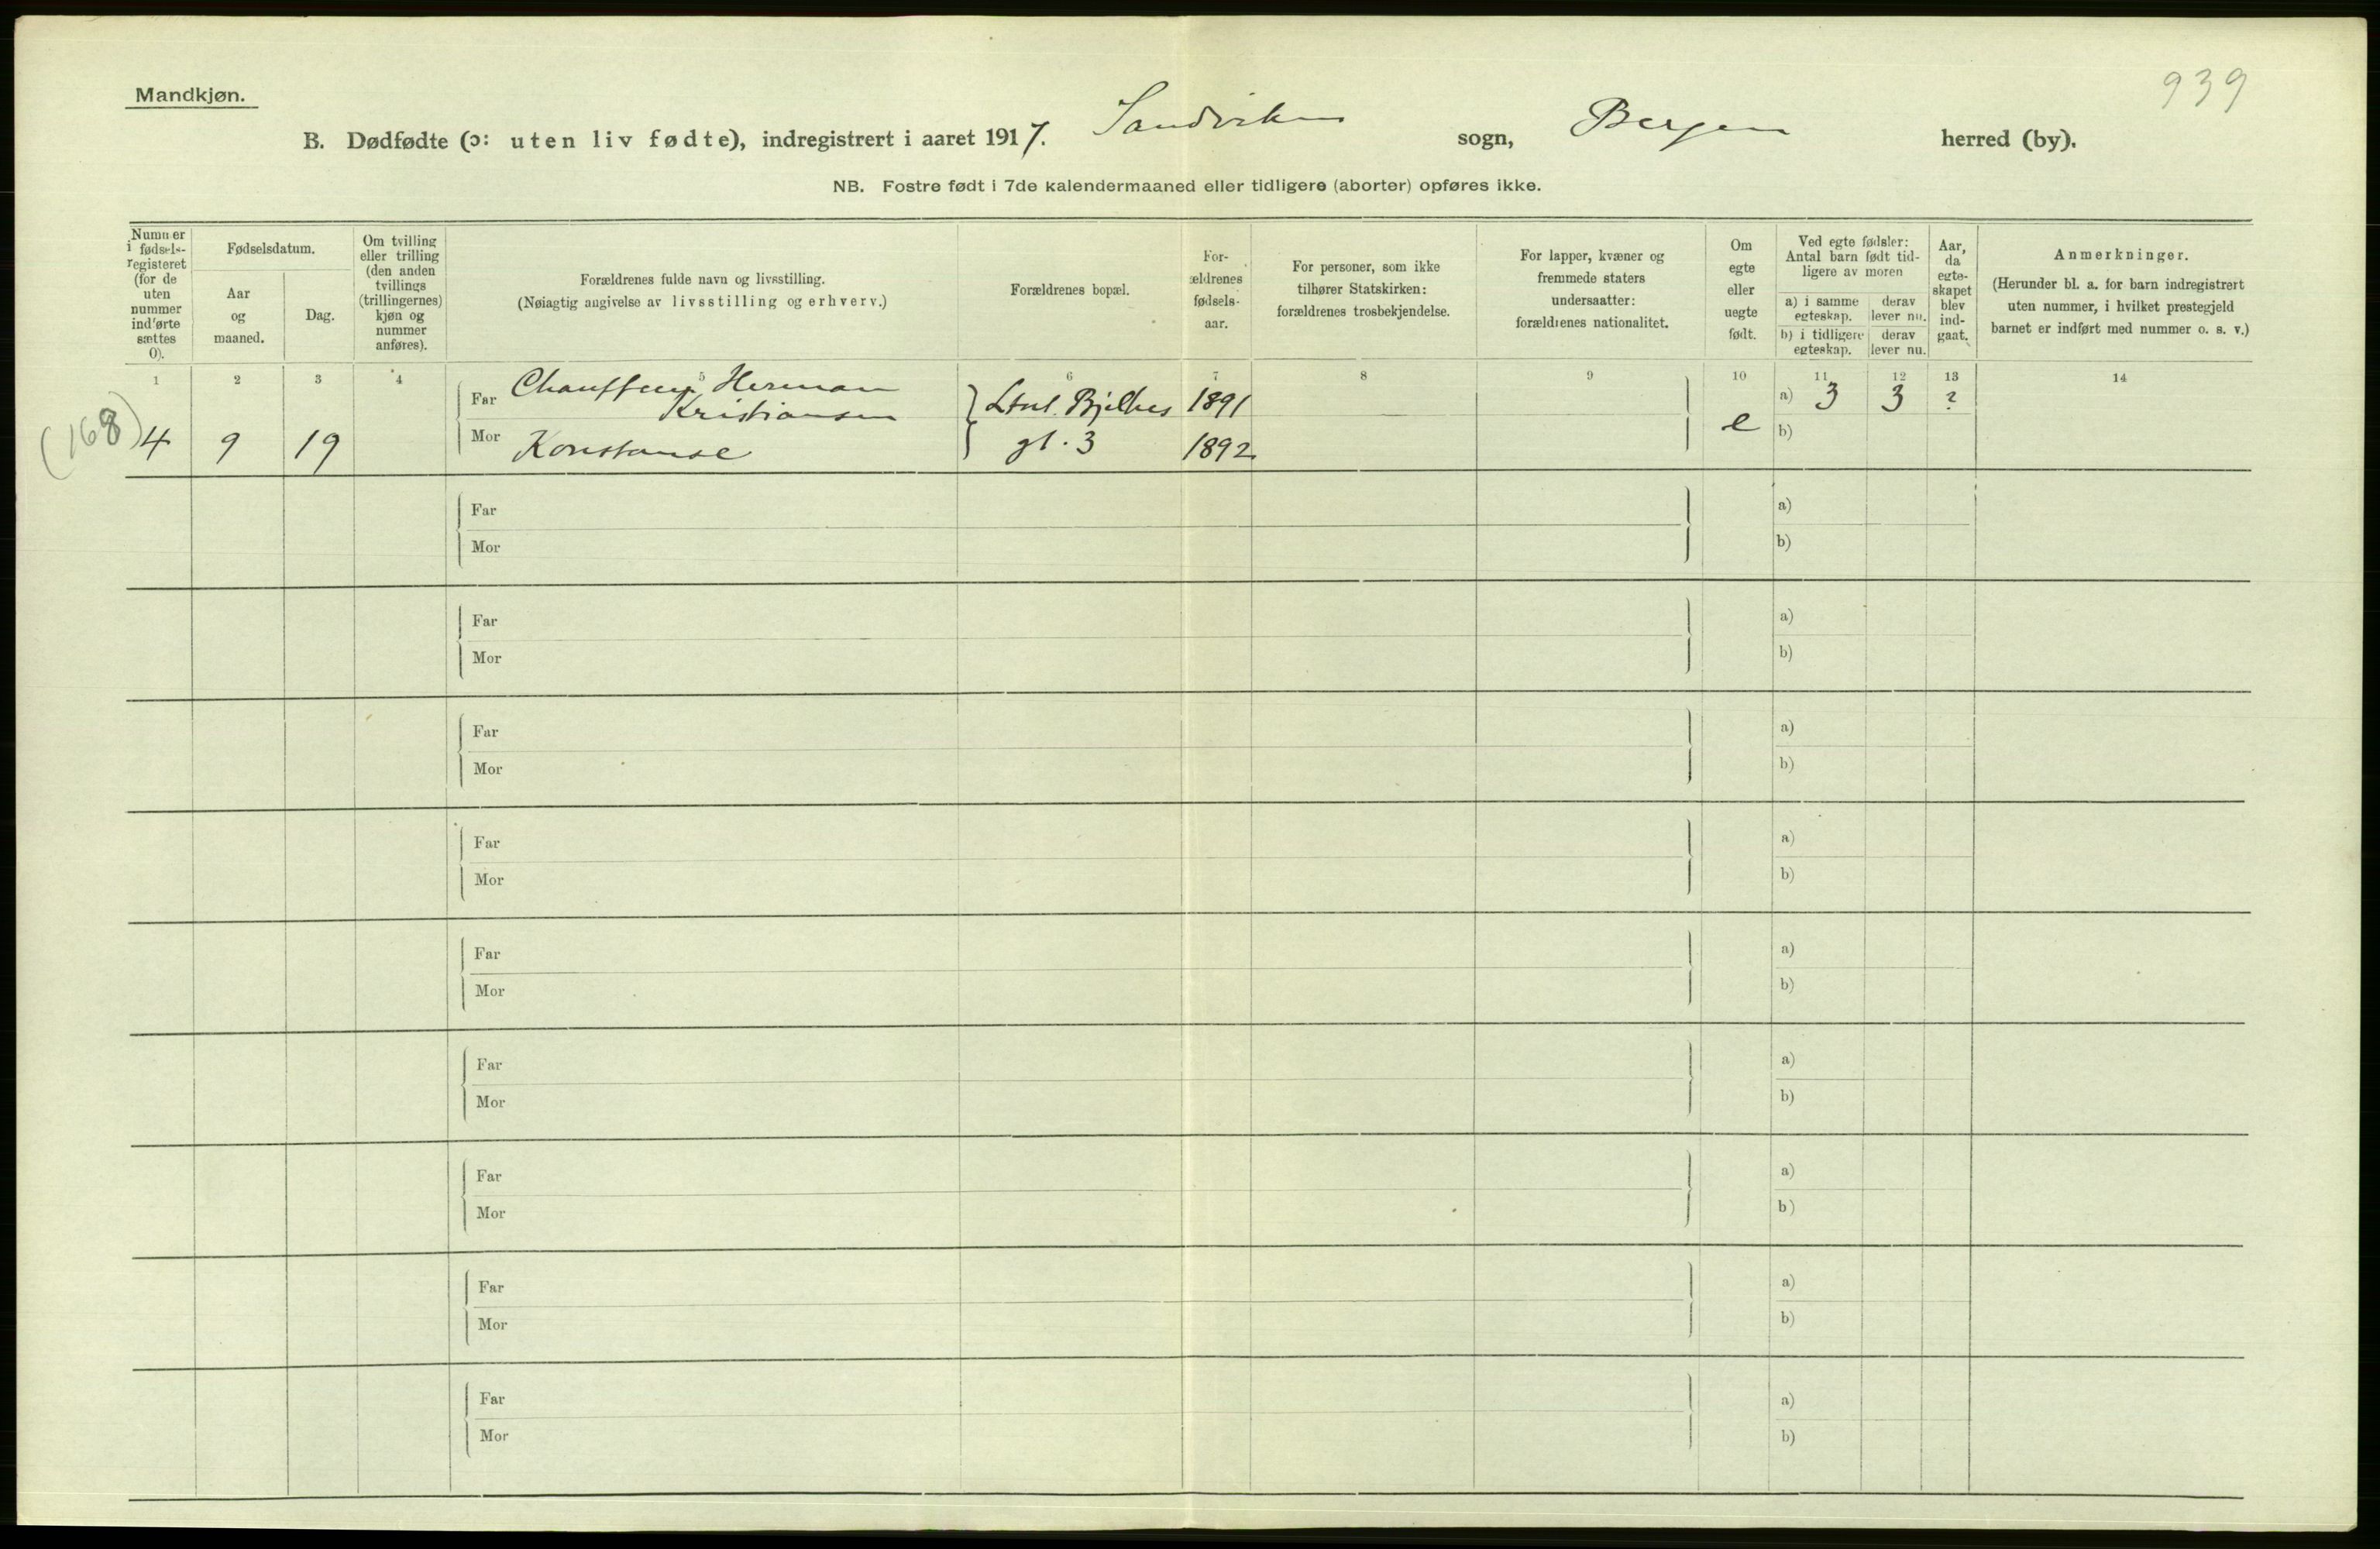 939
Mandkjøn.
B. Dødfødte (ɔ: uten liv fødte), indregistrert i aaret 1917. Sandviken sogn, Bergen herred (by).
NB. Fostre født i 7de kalendermaaned eller tidligere (aborter) opføres ikke.
Nummer i fødsels-registeret (for de uten nummer indførte sættes 0).
Fødselsdatum.
Aar og maaned.
Dag.
Om tvilling eller trilling (den anden tvillings (trillingernes) kjøn og nummer anføres).
Forældrenes fulde navn og livsstilling.
(Nøiagtig angivelse av livsstilling og erhverv.)
Forældrenes bopæl.
For-ældrenes fødsels-aar.
For personer, som ikke tilhører Statskirken: forældrenes trosbekjendelse.
For lapper, kvæner og fremmede staters undersaatter: forældrenes nationalitet.
Om egte eller uegte født.
Ved egte fødsler: Antal barn født tid-ligere av moren
a) i samme egteskap. derav lever nu.
b) i tidligere egteskap. derav lever nu.
Aar, da egte-skapet blev ind-gaat.
Anmerkninger.
(Herunder bl. a. for barn indregistrert uten nummer, i hvilket prestegjeld barnet er indført med nummer o. s. v.)
1 2 3 4 5 6 7 8 9 10 11 12 13 14
Far Chauffeur Herman Kristiansen Bjelkes 1891 — a) 3 3 ?
(168) 4 9 19 Mor Konstanse gt. 3 1892 e b)
Far a)
Mor b)
Far a)
Mor b)
Far a)
Mor b)
Far a)
Mor b)
Far a)
Mor b)
Far a)
Mor b)
Far a)
Mor b)
Far a)
Mor b)
Far a)
Mor b)